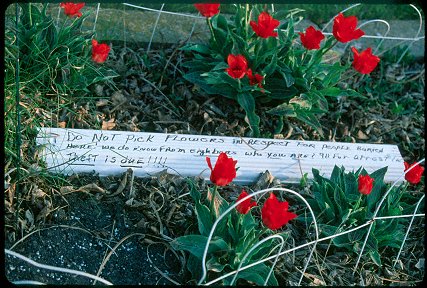 DO NOT PICK FLOWERS IN RESPECT FOR PEOPLE BURIED
HERE! WE DO KNOW FROM NEIGHBORS WHO YOU ARE! FOR ARREST
THEFT IS DUE!!!!